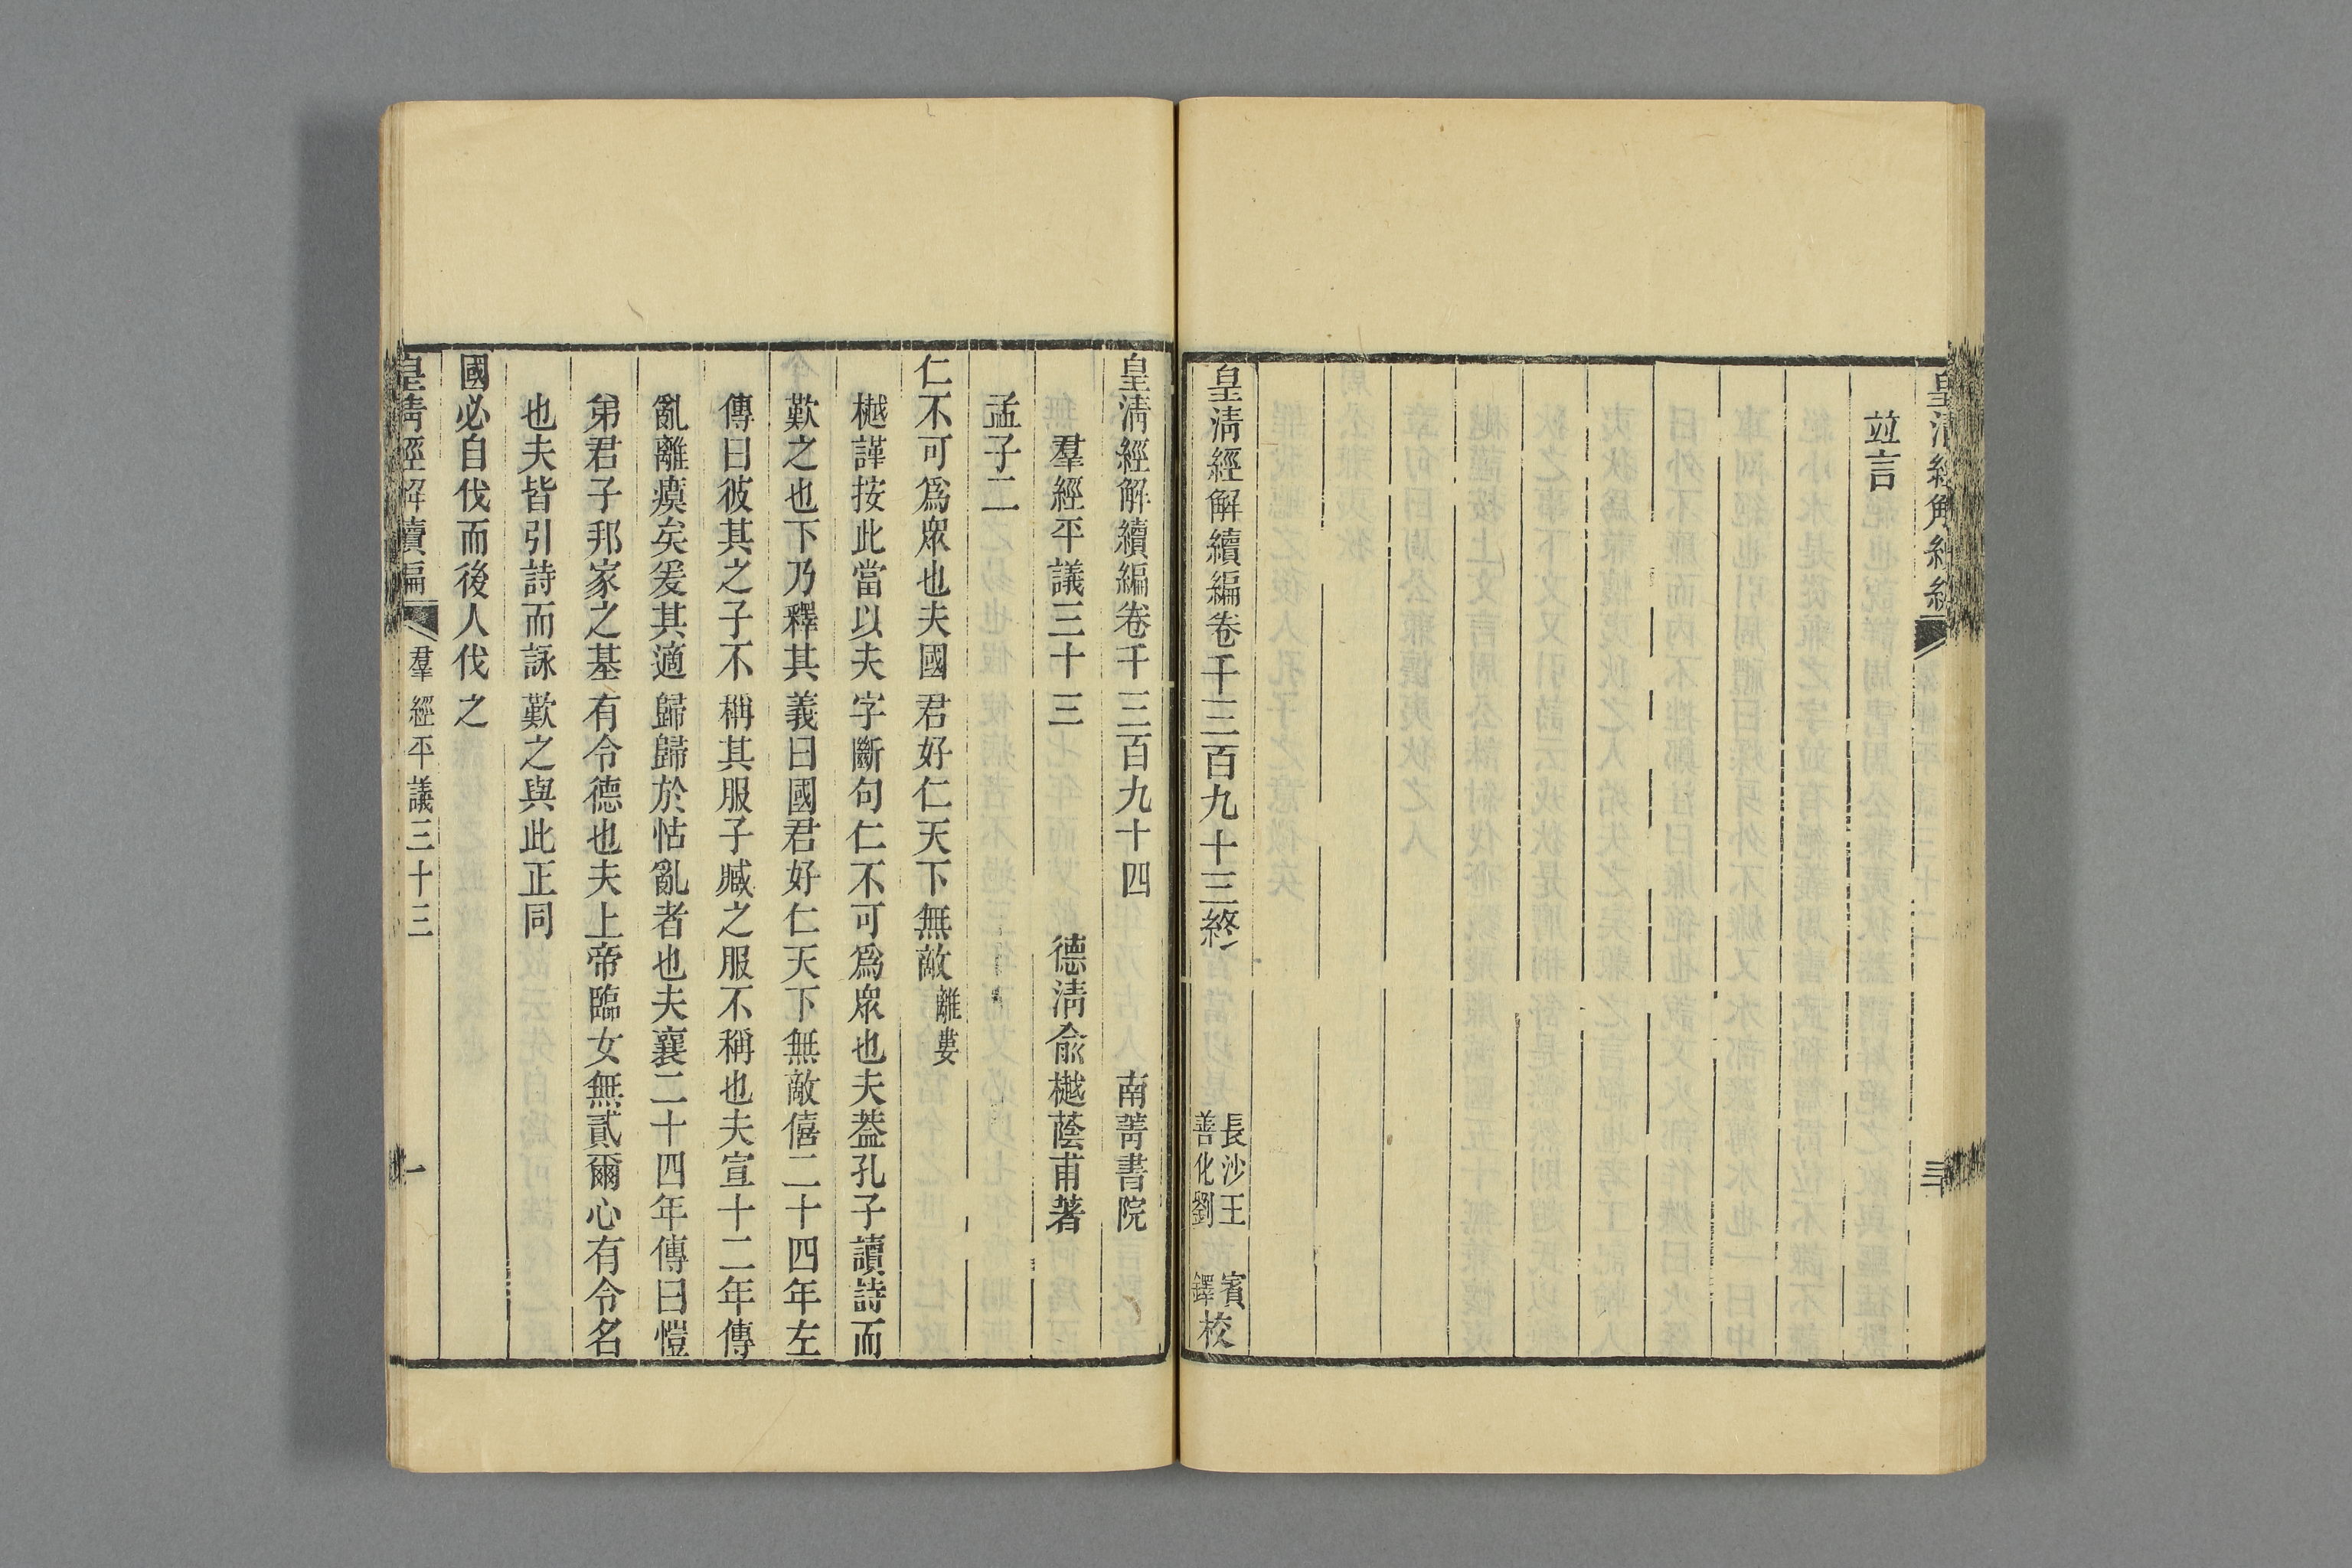 竝言
皇清經解續編卷千三百九十三終
長沙王 賓
善化劉 鐸
校
皇清經解續編卷千三百九十四 南菁書院
羣經平議三十三 德清俞樾蔭甫著
孟子二
仁不可爲眾也夫國君好仁天下無敵離婁
樾謹按此當以夫字斷句仁不可爲眾也夫葢孔子讀詩而
歎之也下乃釋其義曰國君好仁天下無敵僖二十四年左
傳曰彼其之子不稱其服子臧之服不稱也夫宣十二年傳
亂離瘼矣爰其適歸歸於怙亂者也夫襄二十四年傳曰愷
弟君子邦家之基有令德也夫上帝臨女無貳爾心有令名
也夫皆引詩而詠歎之與此正同
國必自伐而後人伐之
皇清經解續編 羣經平議三十三 一